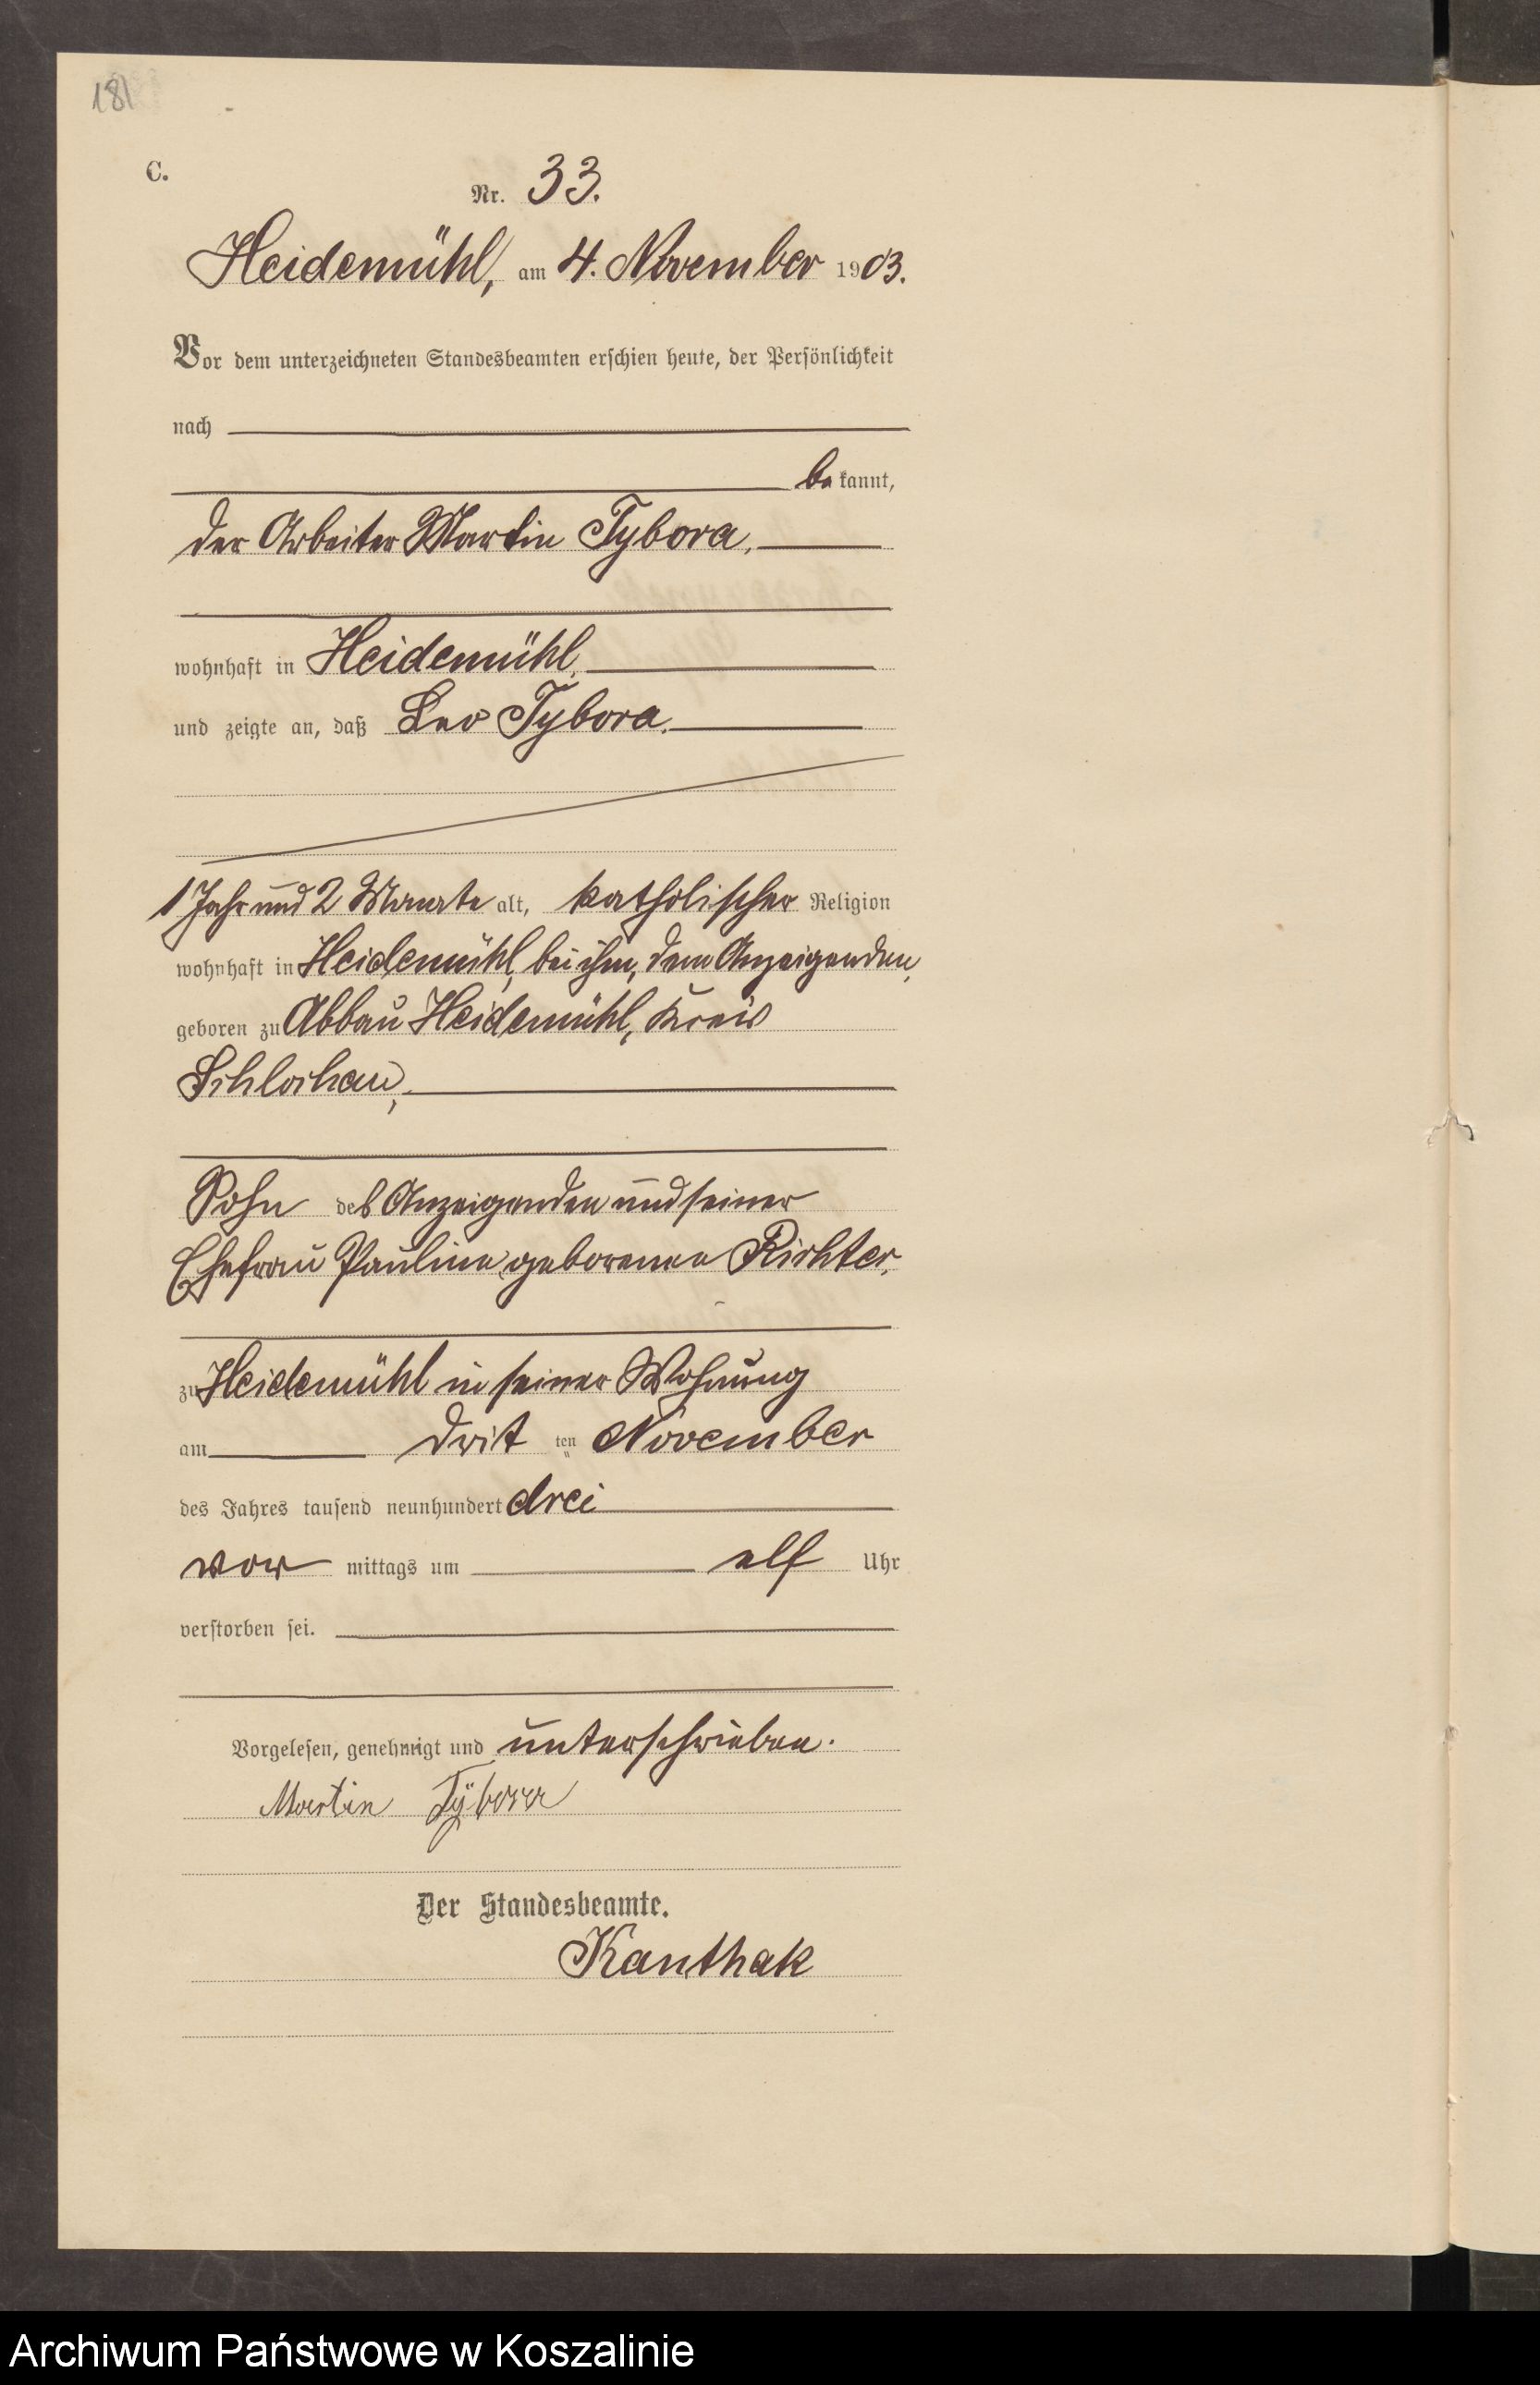 181
C.
Nr. 33.
Heidemühl, am 4. November 1903.
Vor dem unterzeichneten Standesbeamten erschien heute, der Persönlichkeit
nach
bekannt,
der Arbeiter Martin Tybora,
wohnhaft in Heidemühl,
und zeigte an, daß Leo Tybora,
1 Jahr und 2 Monate alt, katholischer Religion
wohnhaft in Heidemühl, bei ihm, dem Anzeigenden,
geboren zu Abbau Heidemühl, Kreis
Schlochau,
Sohn des Anzeigenden und seiner
Ehefrau Pauline geborenen Richter,
zu Heidemühl in seiner Wohnung
am dritten November
des Jahres tausend neunhundert drei
vor mittags um elf Uhr
verstorben sei.
Vorgelesen, genehmigt und unterschrieben.
Martin Tÿbora
Der Standesbeamte.
Kanthak
Archiwum Państwowe w Koszalinie